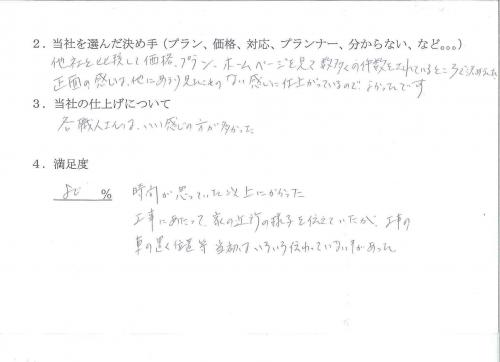 2．当社を選んだ決め手（プラン、価格、対応、プランナー、分からない、など。。。）
他社と比較して価格、プラン、ホームページを見て数多くの件数をされているところで決めました
正面の感じは、他にあまり見ないこのない感じに仕上がっているので よかったです
3．当社の仕上げについて
各職人さんは、いい感じの方が多かった
4．満足度
80 % 時間が思っていた以上にかかった
工事にあたって、家の近所の様子を伝えていたが、工事の
車の置く位置等 当初はいろいろ伝わっていない事があった